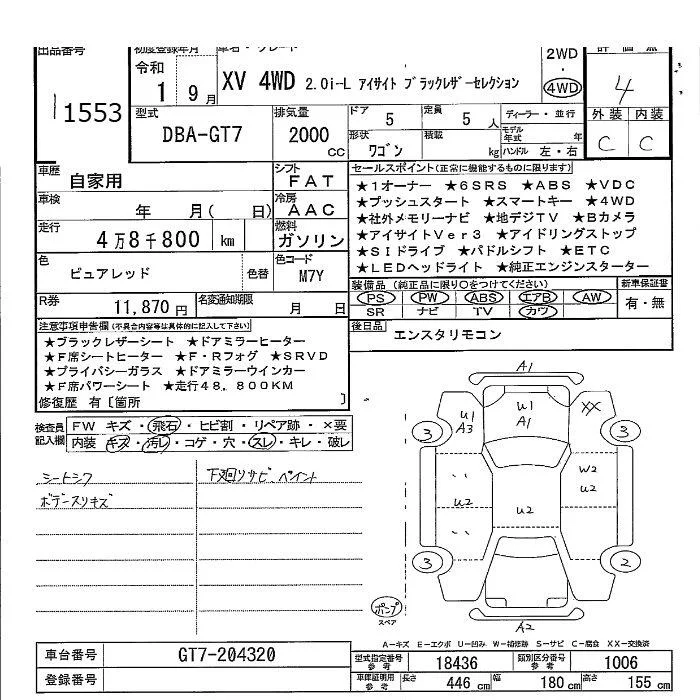 出品番号
1553
初度登録年月
令和
1 9月
車名・グレード
XV 4WD 2.0i-L アイサイト ブラックレザーセレクション
2WD
・
4WD
評価点
4
型式
DBA-GT7
排気量
2000
CC
ドア
5
定員
5 人
形状
ワゴン
積載
kg
ディーラー・並行
モデル年式 年
ハンドル 左・右
外装 内装
C C
車歴
自家用
シフト
FAT
車検
年 月( 日)
冷房
AAC
走行
4万8千800 km
燃料
ガソリン
色
ピュアレッド
色替
色コード
M7Y
R券
11,870円
名変通知期限
月 日
セールスポイント(正常に機能するものに限ります)
★1オーナー ★6SRS ★ABS ★VDC
★プッシュスタート ★スマートキー ★4WD
★社外メモリーナビ ★地デジTV ★Bカメラ
★アイサイトVer3 ★アイドリングストップ
★SIドライブ ★パドルシフト ★ETC
★LEDヘッドライト ★純正エンジンスターター
装備品(純正品に限り○をつけてください)
PS PW ABS エアB AW
SR ナビ TV カワ
新車保証書
有・無
後日品
エンスタリモコン
注意事項申告欄(不具合内容等は具体的に記入して下さい)
★ブラックレザーシート ★ドアミラーヒーター
★F席シートヒーター ★F・Rフォグ ★SRVD
★プライバシーガラス ★ドアミラーウインカー
★F席パワーシート ★走行48,800KM
修復歴 有〔箇所 〕
検査員記入欄
FW キズ・飛石・ヒビ割・リペア跡・×要
内装 キズ・汚レ・コゲ・穴・スレ・キレ・破レ
シートシワ
ボデースリキズ
下廻りサビ、ペイント
A1
U1
A3
U1
A1
XX
3
3
U2
U2
W2
U2
3
2
ポンプ
スペア
A2
A-キズ E-エクボ U-凹み W-補修跡 S-サビ C-腐食 XX-交換済
車台番号
GT7-204320
登録番号
型式指定番号
参考
18436
類別区分番号
参考
1006
車庫証明用
参考
長さ 446 cm 幅 180 cm 高さ 155 cm